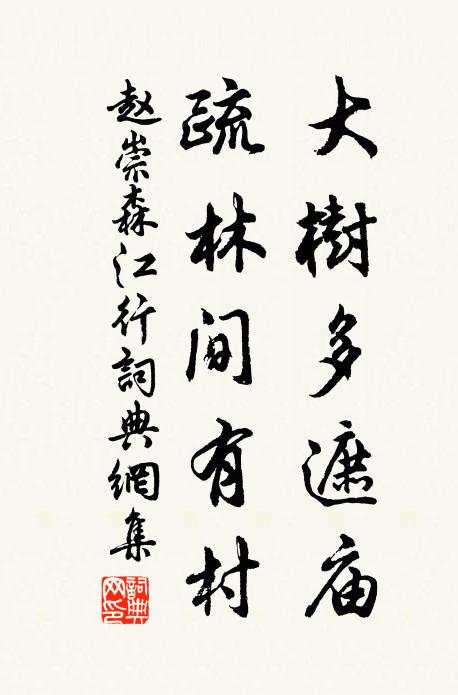 大樹多遮庙
疏林间有村
赵崇森江行詞典網集
詞典网印